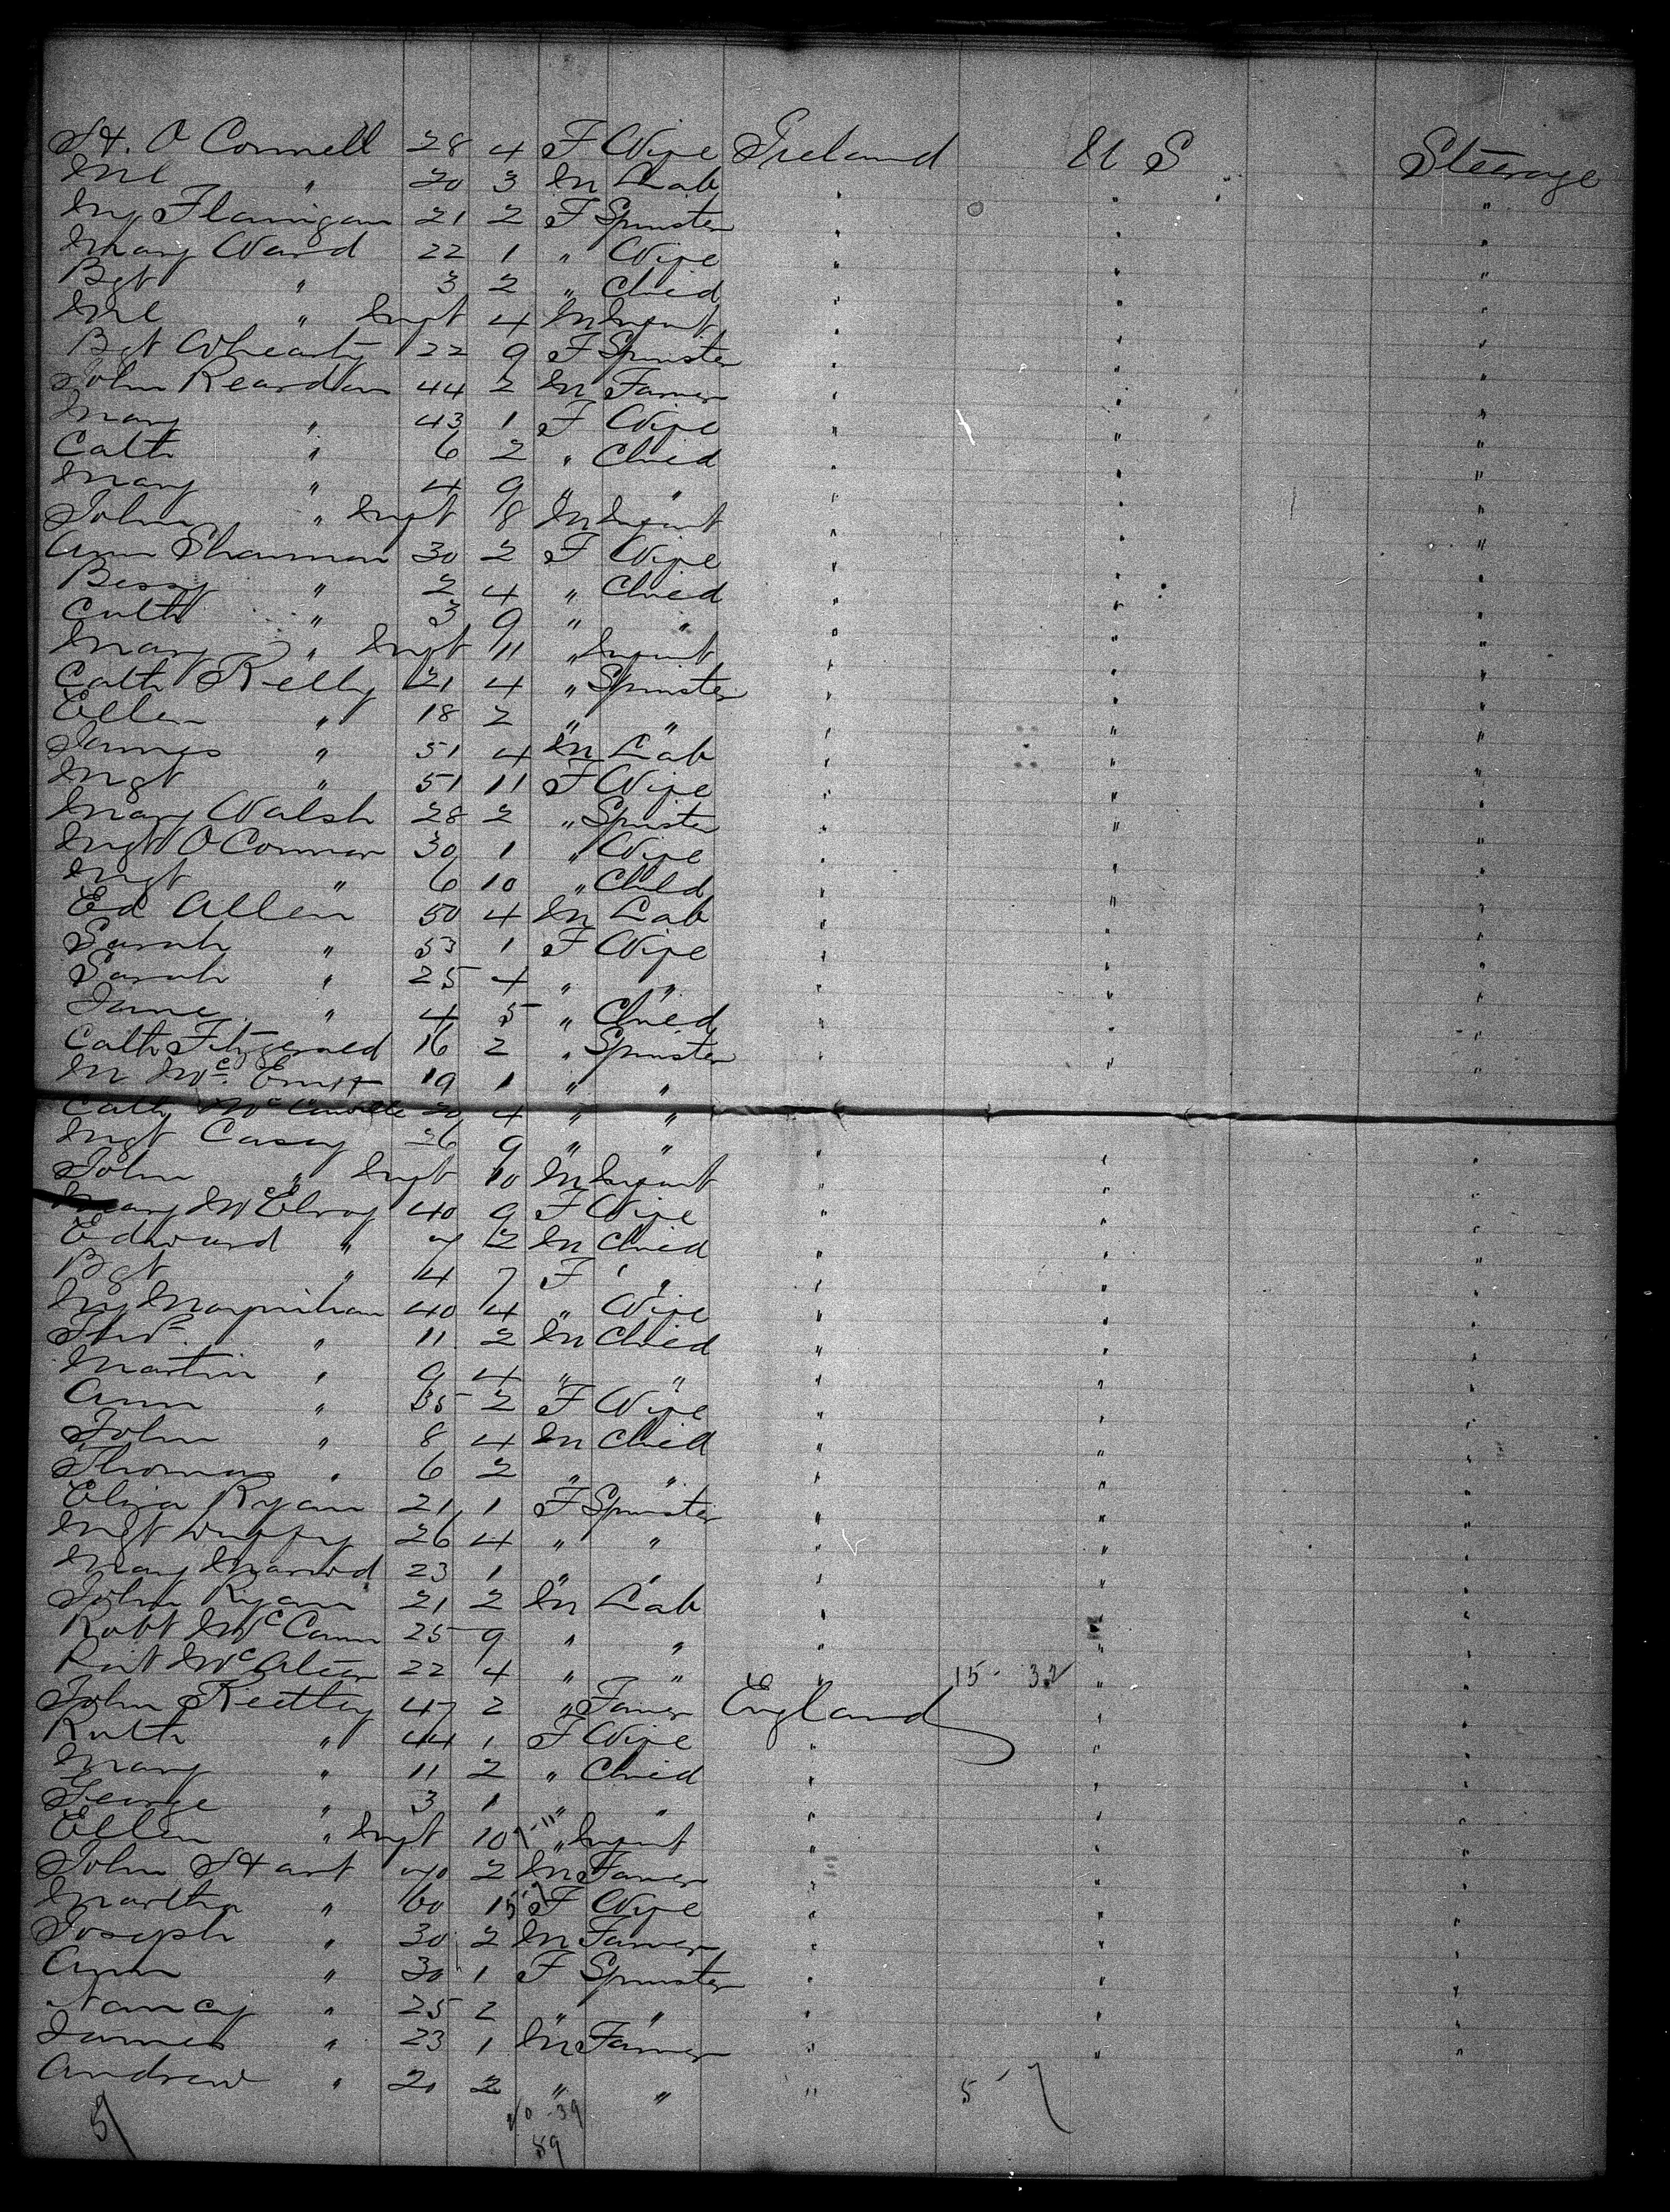 H. O Connell 28 4 F Wife Ireland U S Steerage
Ml " 20 3 M Lab " " "
My Flannigan 21 2 F Spinster " " "
Mary Ward 22 1 " Wife " " "
Bgt " 3 2 " Child " " "
Ml " Inft 4 M Infant " " "
Bgt Whearty 22 9 F Spinster " " "
John Reardon 44 2 M Farmer " " "
Mary " 43 1 F Wife " " "
Cath " 6 2 " Child " " "
Mary " 4 9 " " " " "
John " Inft 8 M Infant " " "
Ann Shannon 30 2 F Wife " " "
Bessy " 2 4 " Child " " "
Cath " 3 9 " " " " "
Mary " Inft 11 " Infant " " "
Cath Kelly 21 4 " Spinster " " "
Ellen " 18 2 " " " " "
James " 51 4 M Lab " " "
Mgt " 51 11 F Wife " " "
Mary Walsh 28 2 " Spinster " " "
Mgt O Connor 30 1 " Wife " " "
Mgt " 6 10 " Child " " "
Ed Allen 50 4 M Lab " " "
Sarah " 53 1 F Wife " " "
Sarah " 25 4 " " " " "
Jane " 4 5 " Child " " "
Cath Fitzgerald 16 2 " Spinster " " "
M Mc 19 1 " "
Cath Mc 20 4 " "
Mgt Casey 26 9 " " " " "
John " Inft 10 M Infant " " "
Mary McElroy 40 9 F Wife " " "
Edward " 7 2 M Child " " "
Bgt " 4 7 F " " " "
My 40 4 " Wife " " "
Thos " 11 2 M Child " " "
Martin " 9 4 " " " " "
Ann " 35 2 F Wife " " "
John " 8 4 M Child " " "
Thomas " 6 2 " " " " "
Eliza Ryan 21 1 F Spinster " " "
Mgt Duffy 26 4 " " " " "
Mary 23 1 " " " " "
John Ryan 21 2 M Lab " " "
Robt McCann 25 9 " " " " "
Robt McAteer 22 4 " " " 15 - 32 " "
John 47 2 " Farmer England " "
Ruth " 44 1 F Wife " " "
Mary " 11 2 " Child " " "
George " 3 1 " " " " "
Ellen " Inft 10 " Infant " " "
John Hart 70 2 M Farmer " " "
Martha " 60 1 F Wife " " "
Joseph " 30 2 M Farmer " " "
Ann " 30 1 F Spinster " " "
Nancy " 25 2 " " " " "
James " 23 1 M Farmer " " "
Andrew " 21 2 " " " 5 7
20 - 39
59